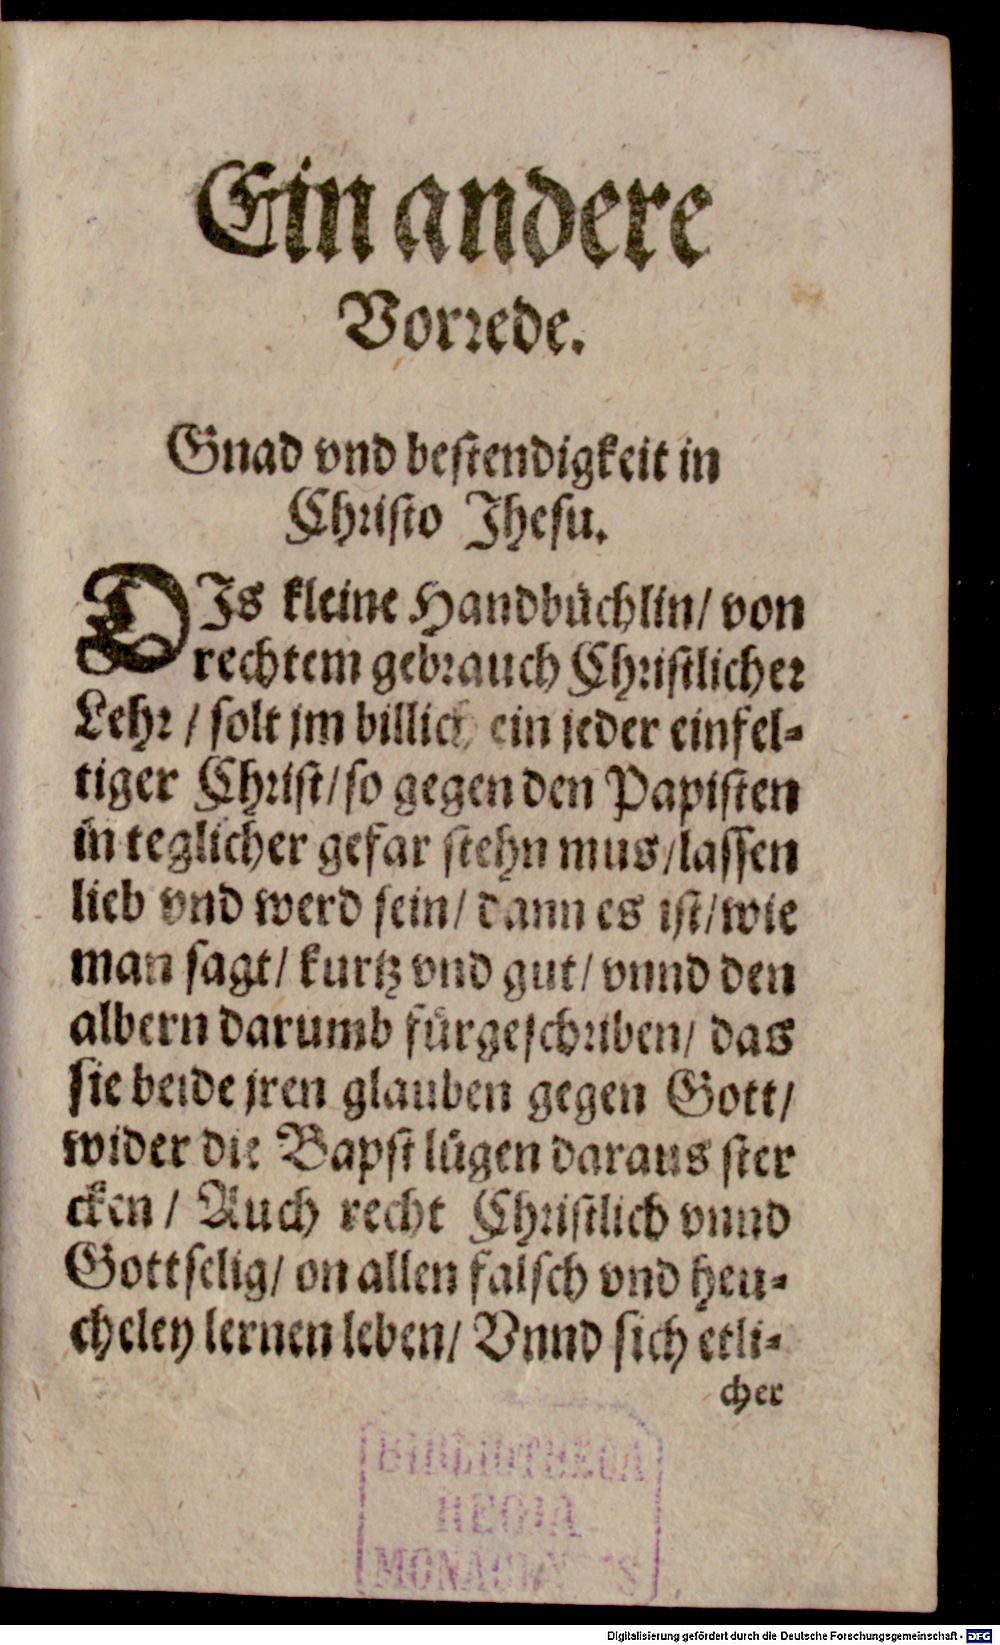 Ein andere
Vorrede.
Gnad vnd bestendigkeit in
Christo Jhesu.
DIs kleine Handbüchlin/ von
rechtem gebrauch Christlicher
Lehr / solt jm billich ein jeder einfel-
tiger Christ/so gegen den Papisten
in teglicher gefar stehn mus/lassen
lieb vnd werd sein/ dann es ist/wie
man sagt/ kurtz vnd gut/ vnnd den
albern darumb fürgeschriben/ das
sie beide jren glauben gegen Gott/
wider die Bapst lügen daraus ster
cken / Auch recht Christlich vnnd
Gottselig/ on allen falsch vnd heu-
cheley lernen leben/ Vnnd sich etli-
cher
BIBLIOTHECA
REGIA
MONACENSIS
Digitalisierung gefördert durch die Deutsche Forschungsgemeinschaft - DFG